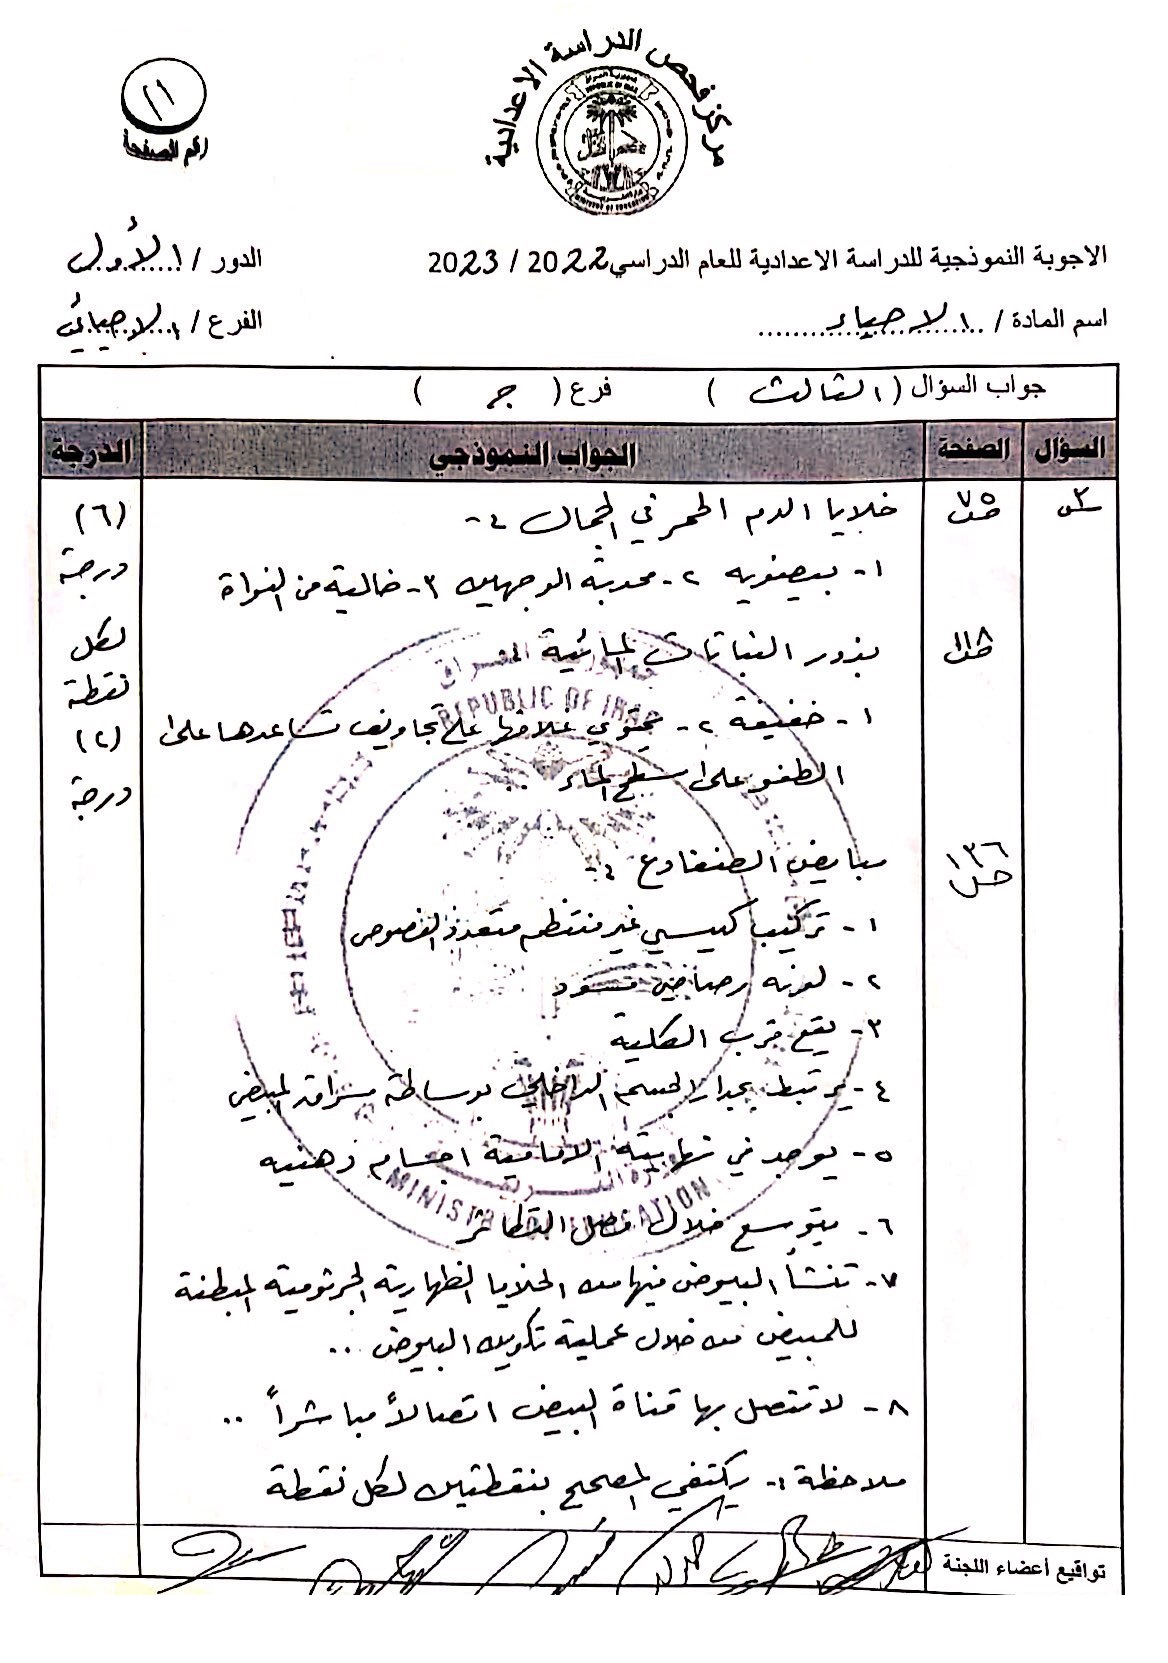 مركز فحص الدراسة الاعدادية
٢١
رقم الصفحة
الاجوبة النموذجية للدراسة الاعدادية للعام الدراسي 2022 / 2023
الدور / الأول
اسم المادة / الاحياء
الفرع / الاحيائي
جواب السؤال ( الثالث ) فرع ( جـ )
السؤال الصفحة الجواب النموذجي الدرجة
س٣ ص٧٥ خلايا الدم الحمر في الجمال :- (٦)
درجة
١- بيضوية ٢- محدبة الوجهين ٣- خالية من النواة
ص١١٨ بذور النباتات المائية لكل
نقطة
١- خفيفة ٢- يحتوي غلافها على تجاويف تساعدها على (٢)
الطفو على سطح الماء درجة
ص١٣٦ مبايض الضفادع :-
١- تركيب كيسي غير منتظم متعدد الفصوص
٢- لونه رصاصي مسود
٣- يقع قرب الكلية
٤- يرتبط بجدار الجسم الداخلي بوساطة مسراق المبيض
٥- يوجد في نهايته الامامية اجسام دهنيه
٦- يتوسع خلال فصل التكاثر
٧- تنشأ البيوض فيها من الخلايا الظهارية الجرثومية المبطنة
للمبيض من خلال عملية تكوين البيوض ..
٨- لا تتصل بها قناة البيض اتصالاً مباشراً ..
ملاحظة :- يكتفي المصحح بنقطتين لكل نقطة
تواقيع أعضاء اللجنة
REPUBLIC OF IRAQ
MINISTRY OF EDUCATION